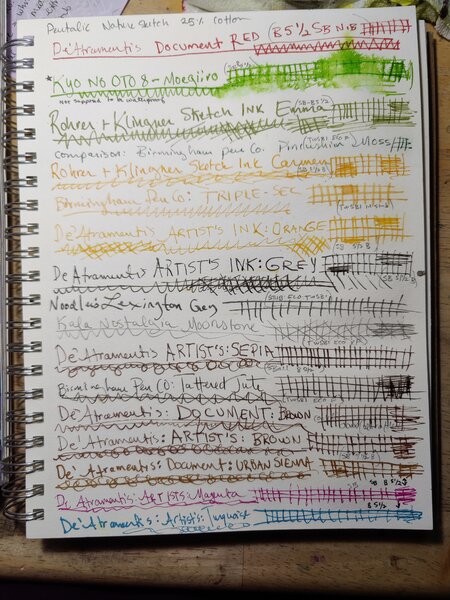 Pentalic Nature Sketch 25% cotton
De'Atramentis Document RED (B 5 1/2 SB NIB)
*Kyo No OTO 8 - Moegiiro
not supposed to be waterproof
Rohrer + Klingner Sketch INK Emma (SB-B 5 1/2)
(TWSBI ECO F)
Comparison: Birmingham Pen Co. Moss
Rohrer + Klingner Sketch Ink Carmen
SB 5 1/2 B
Birmingham Pen Co: TRIPLE-SEC
De'Atramentis ARTIST'S INK: ORANGE
SB 5 1/2 B
De'Atramentis ARTIST'S INK: GREY
SB 5 1/2 B
Noodler's Lexington Grey (TWSBI)
Kala Nostalgia Moonstone
(TWSBI ECO F)
De'Atramentis ARTIST'S: SEPIA
Birmingham Pen Co: Tattered Jute
De'Atramentis: DOCUMENT: BROWN
De'Atramentis: ARTIST'S: BROWN
De'Atramentis: Document: URBAN SIENNA
SB B 5 1/2
De'Atramentis: ARTISTS: Magenta
B 5 1/2
De'Atramentis: Artist's: Turquoise